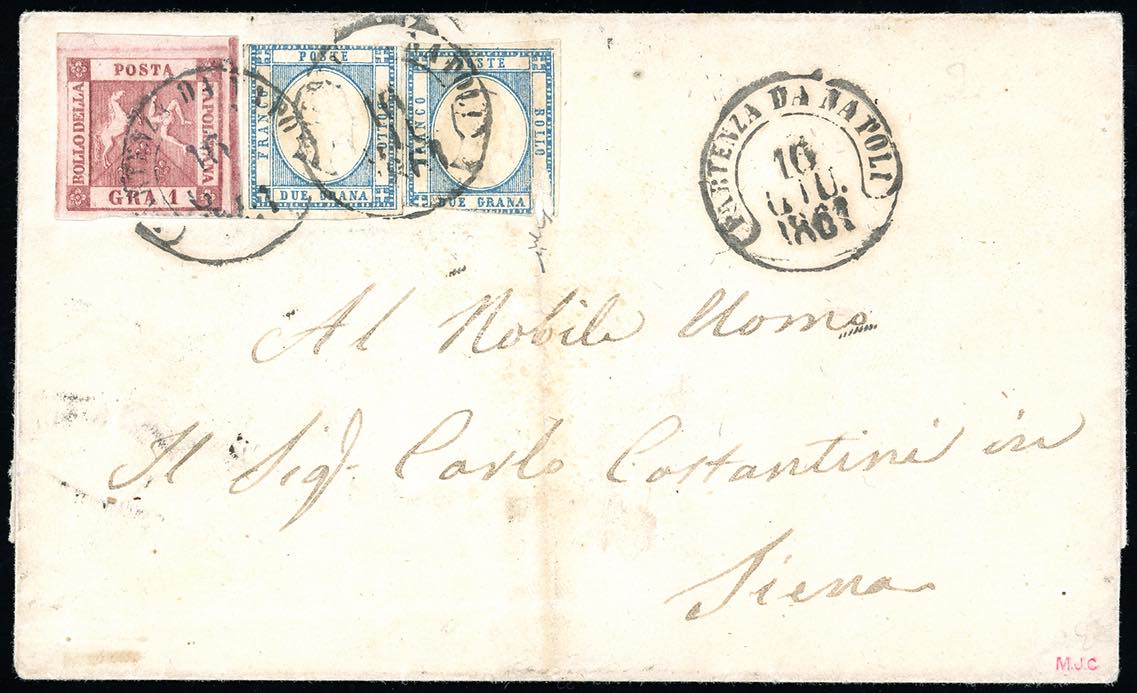 POSTA
BOLLO DELLA
NAPOLETANA
GRA 1
POSTE
FRANCO
BOLLO
DUE GRANA
POSTE
FRANCO
BOLLO
DUE GRANA
PARTENZA DA NAPOLI
16
GIU.
1861
Al Nobile Uomo
Il Sigr. Carlo Costantini in
Siena
M.J.C